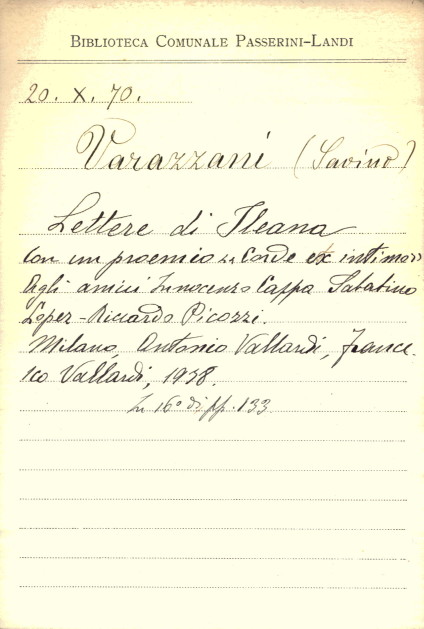 BIBLIOTECA COMUNALE PASSERINI-LANDI
20. X. 70.
Varazzani (Savino)
Lettere di Ileana
Con un proemio "Corde ex intimo"
Agli amici Innocenzo Cappa Sabatino
Lopez-Riccardo Picozzi.
Milano, Antonio Vallardi, France
sco Vallardi, 1938.
In 16° di pp. 133